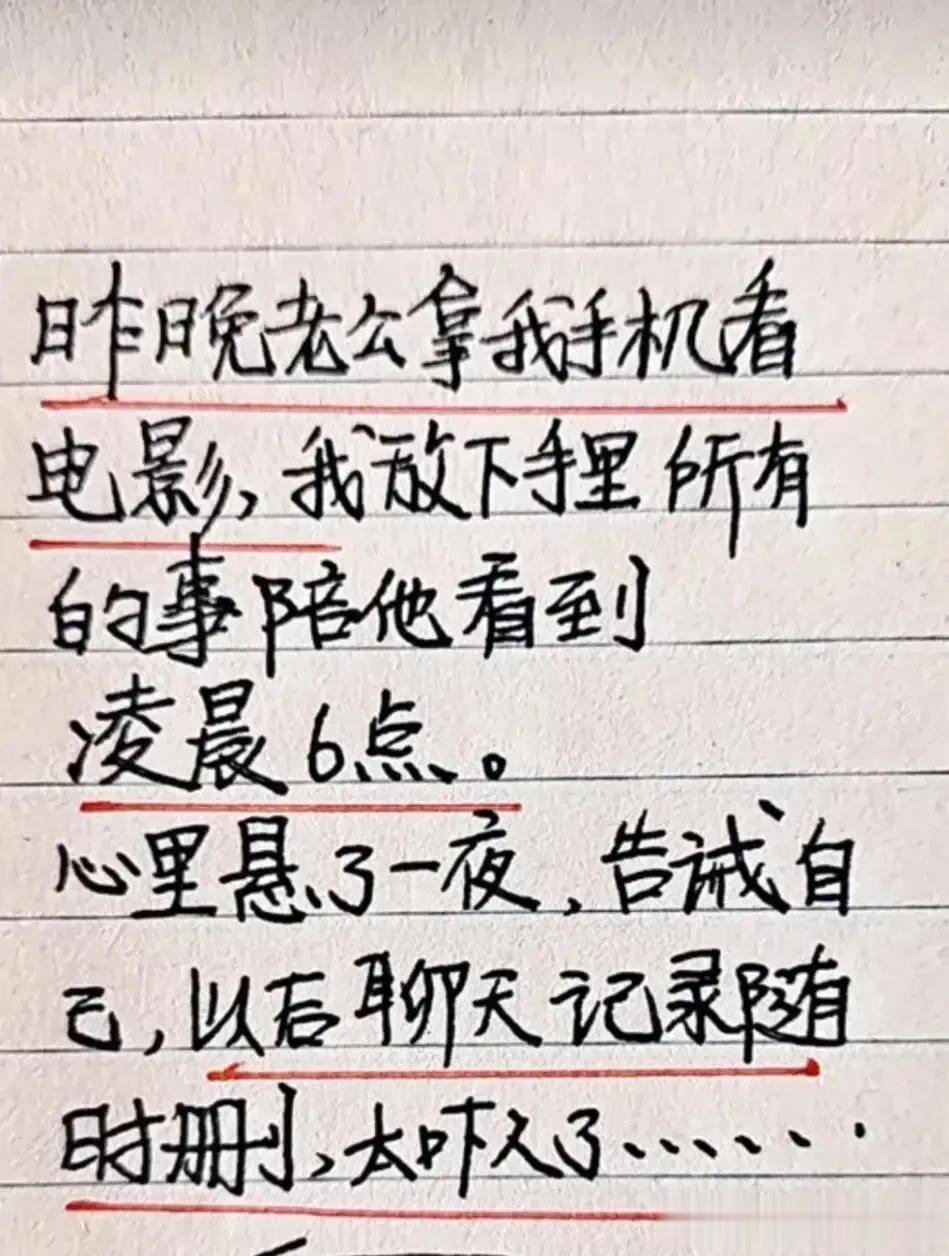 昨晚老公拿我手机看
电影，我放下手里所有
的事陪他看到
凌晨6点。
心里悬了一夜，告诫自
己，以后聊天记录随
时删，太吓人了……